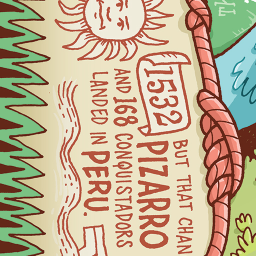 BUT THAT
1532 PIZARRO
AND 168 CONQUISTADORS
LANDED IN PERU.